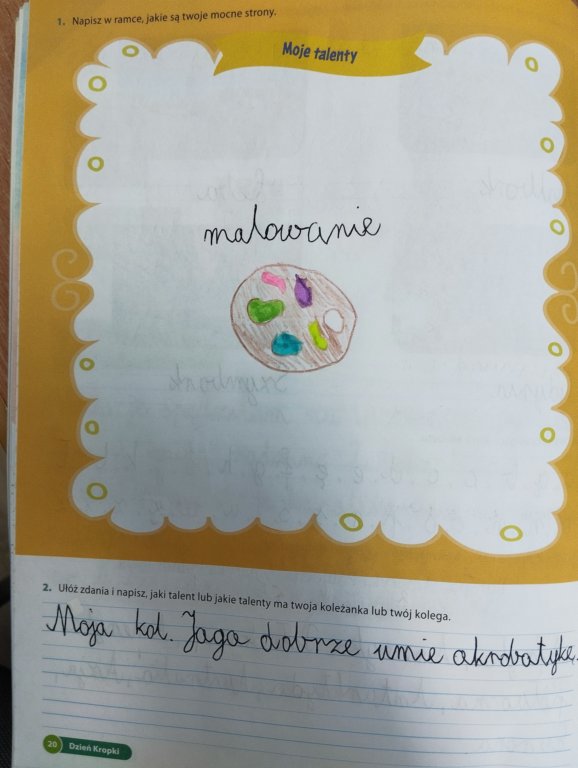 1. Napisz w ramce, jakie są twoje mocne strony.
Moje talenty
malowanie
2. Ułóż zdania i napisz, jaki talent lub jakie talenty ma twoja koleżanka lub twój kolega.
Moja kol. Jaga dobrze umie akrobatykę.
20 Dzień Kropki